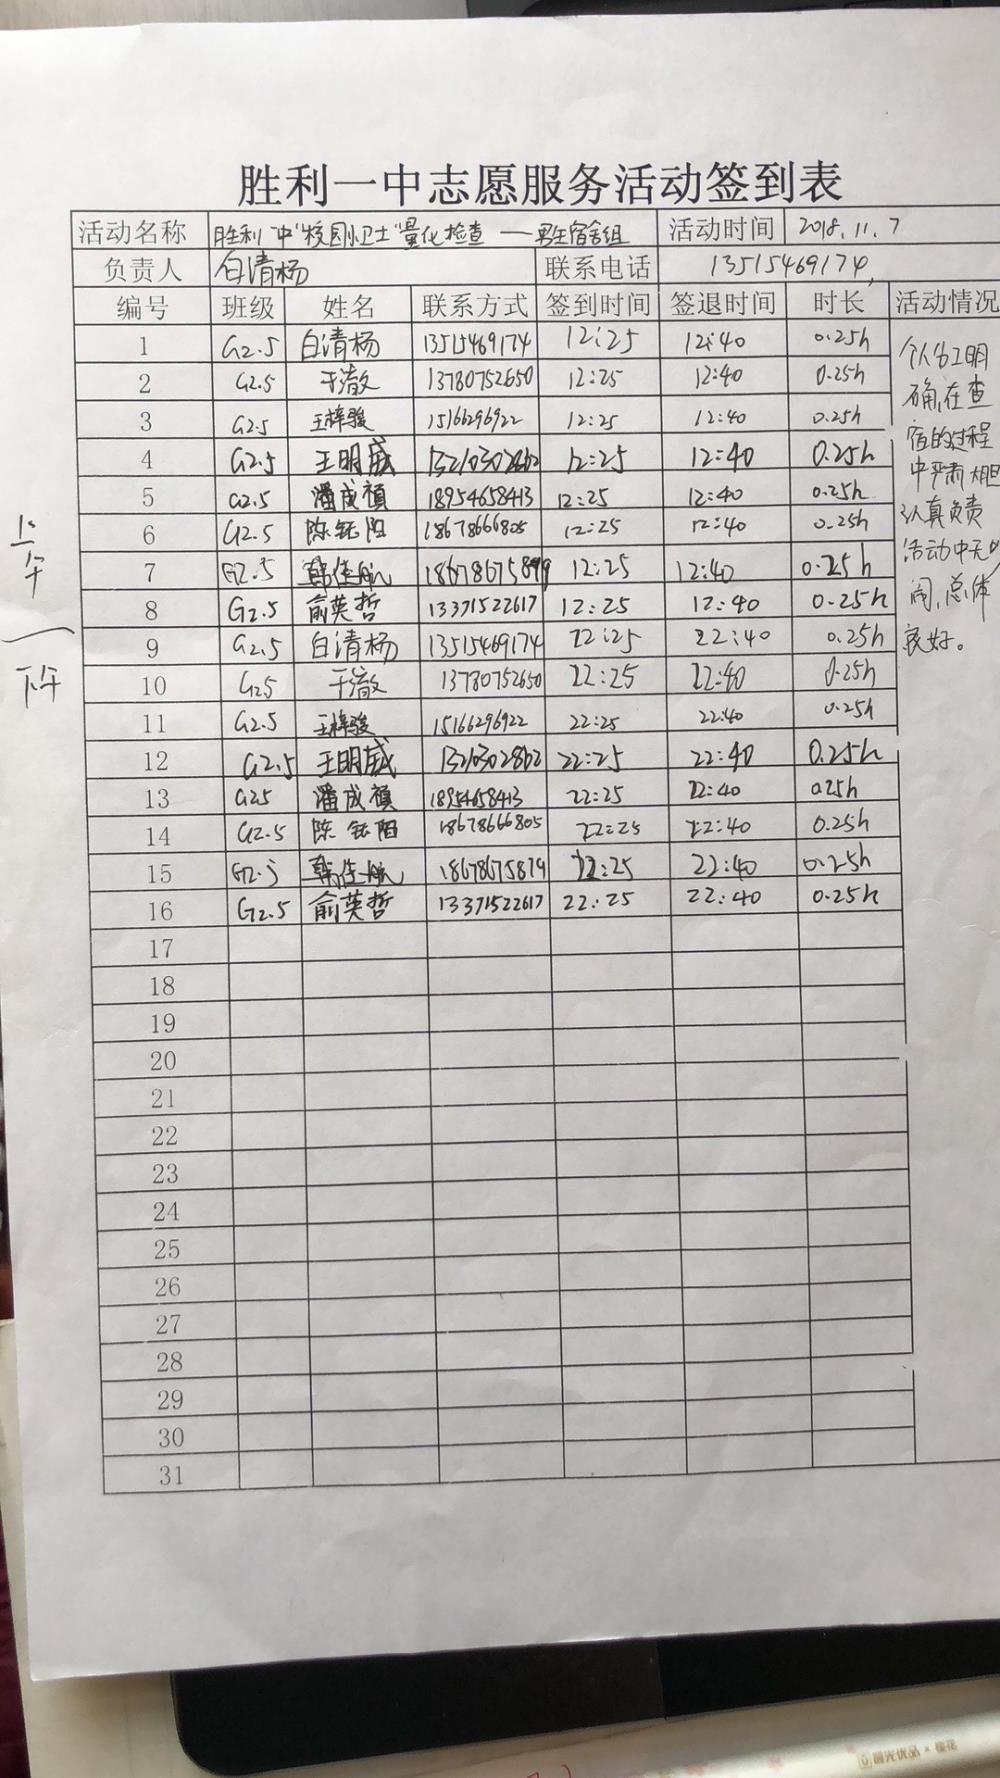 胜利一中志愿服务活动签到表
活动名称 胜利一中"校园小卫士"量化检查——男生宿舍组 活动时间 2018.11.7
负责人 白清杨 联系电话 13515469174
编号 班级 姓名 联系方式 签到时间 签退时间 时长 活动情况
1 G2.5 白清杨 13515469174 12:25 12:40 0.25h
2 G2.5 于澈 13780752650 12:25 12:40 0.25h
3 G2.5 王梓骏 15166296922 12:25 12:40 0.25h
4 G2.5 王明威 12:25 12:40 0.25h
5 G2.5 潘成禛 18954658413 12:25 12:40 0.25h
6 G2.5 陈钰阳 18678666805 12:25 12:40 0.25h
7 G2.5 韩佳航 12:25 12:40 0.25h
8 G2.5 俞英哲 13371522617 12:25 12:40 0.25h
9 G2.5 白清杨 13515469174 22:25 22:40 0.25h
10 G2.5 于澈 13780752650 22:25 22:40 0.25h
11 G2.5 王梓骏 15166296922 22:25 22:40 0.25h
12 G2.5 王明威 13210302862 22:25 22:40 0.25h
13 G2.5 潘成禛 18954658413 22:25 22:40 0.25h
14 G2.5 陈钰阳 18678666805 22:25 22:40 0.25h
15 G2.5 韩佳航 18678675879 22:25 22:40 0.25h
16 G2.5 俞英哲 13371522617 22:25 22:40 0.25h
17
18
19
20
21
22
23
24
25
26
27
28
29
30
31
个人分工明
确,在查
宿的过程
中严肃大胆
认真负责
活动中无
总体
良好。
上午
下午
晨光优品×樱花